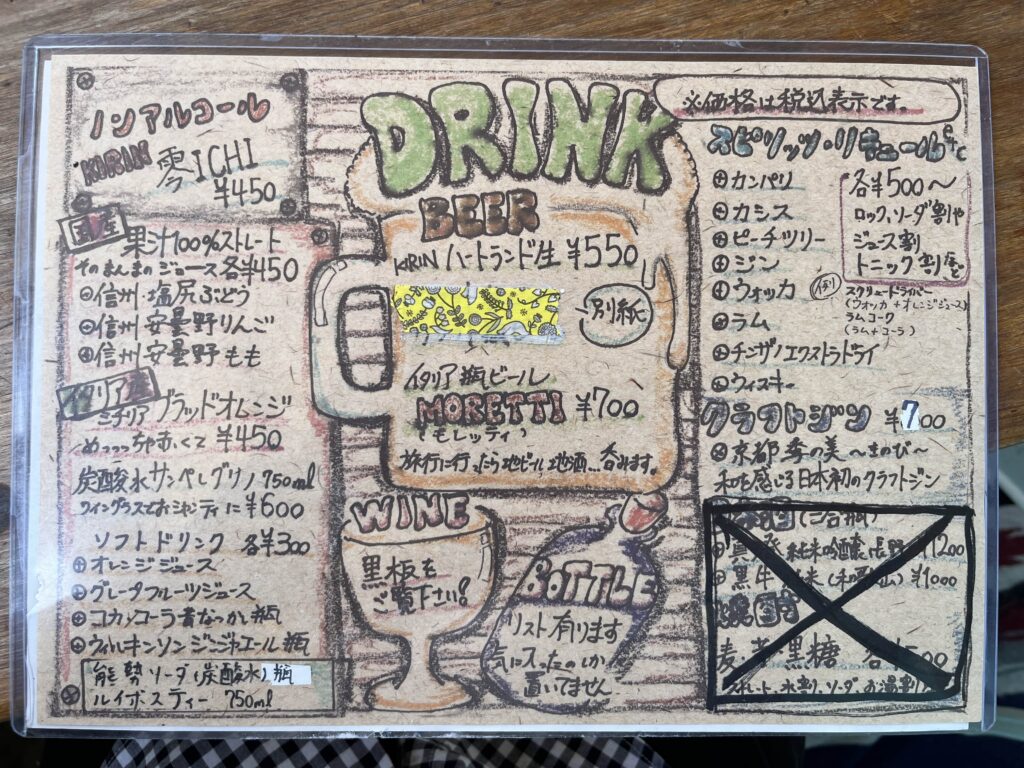 ノンアルコール
KIRIN 零ICHI
¥450
国産
果汁100%ストレート
そのまんまのジュース各¥450
信州・塩尻ぶどう
信州安曇野りんご
信州安曇野もも
イタリア産
シチリア ブラッドオレンジ
めっっっちゃ赤くて ¥450
炭酸水サンペレグリノ 750ml
ワイングラスでおシャレティに ¥600
ソフトドリンク 各¥300
オレンジジュース
グレープフルーツジュース
コカ・コーラ昔なつかし瓶
ウィルキンソンジンジャエール瓶
能勢ソーダ(炭酸水)瓶
ルイボスティー 750ml
DRINK
BEER
KIRIN ハートランド生 ¥550
別紙
イタリア瓶ビール
MORETTI ¥700
(モレッティ)
旅行に行ったら地ビール地酒…呑みます。
WINE
黒板を
ご覧下さい!
BOTTLE
リスト有ります
気に入ったのしか
置いてません
※価格は税込表示です。
スピリッツ・リキュールetc
カンパリ
カシス
ピーチツリー
ジン
ウォッカ
ラム
チンザノエクストラドライ
ウィスキー
各¥500〜
ロック、ソーダ割や
ジュース割
トニック割など
(例)スクリュードライバー
(ウォッカ+オレンジジュース)
ラムコーク
(ラム+コーラ)
クラフトジン ¥700
京都 季の美 〜きのび〜
和を感じる日本初のクラフトジン
純米吟醸 長野 ¥1200
黒牛 ¥1000
麦 芋 黒糖
水割 ソーダ お湯割